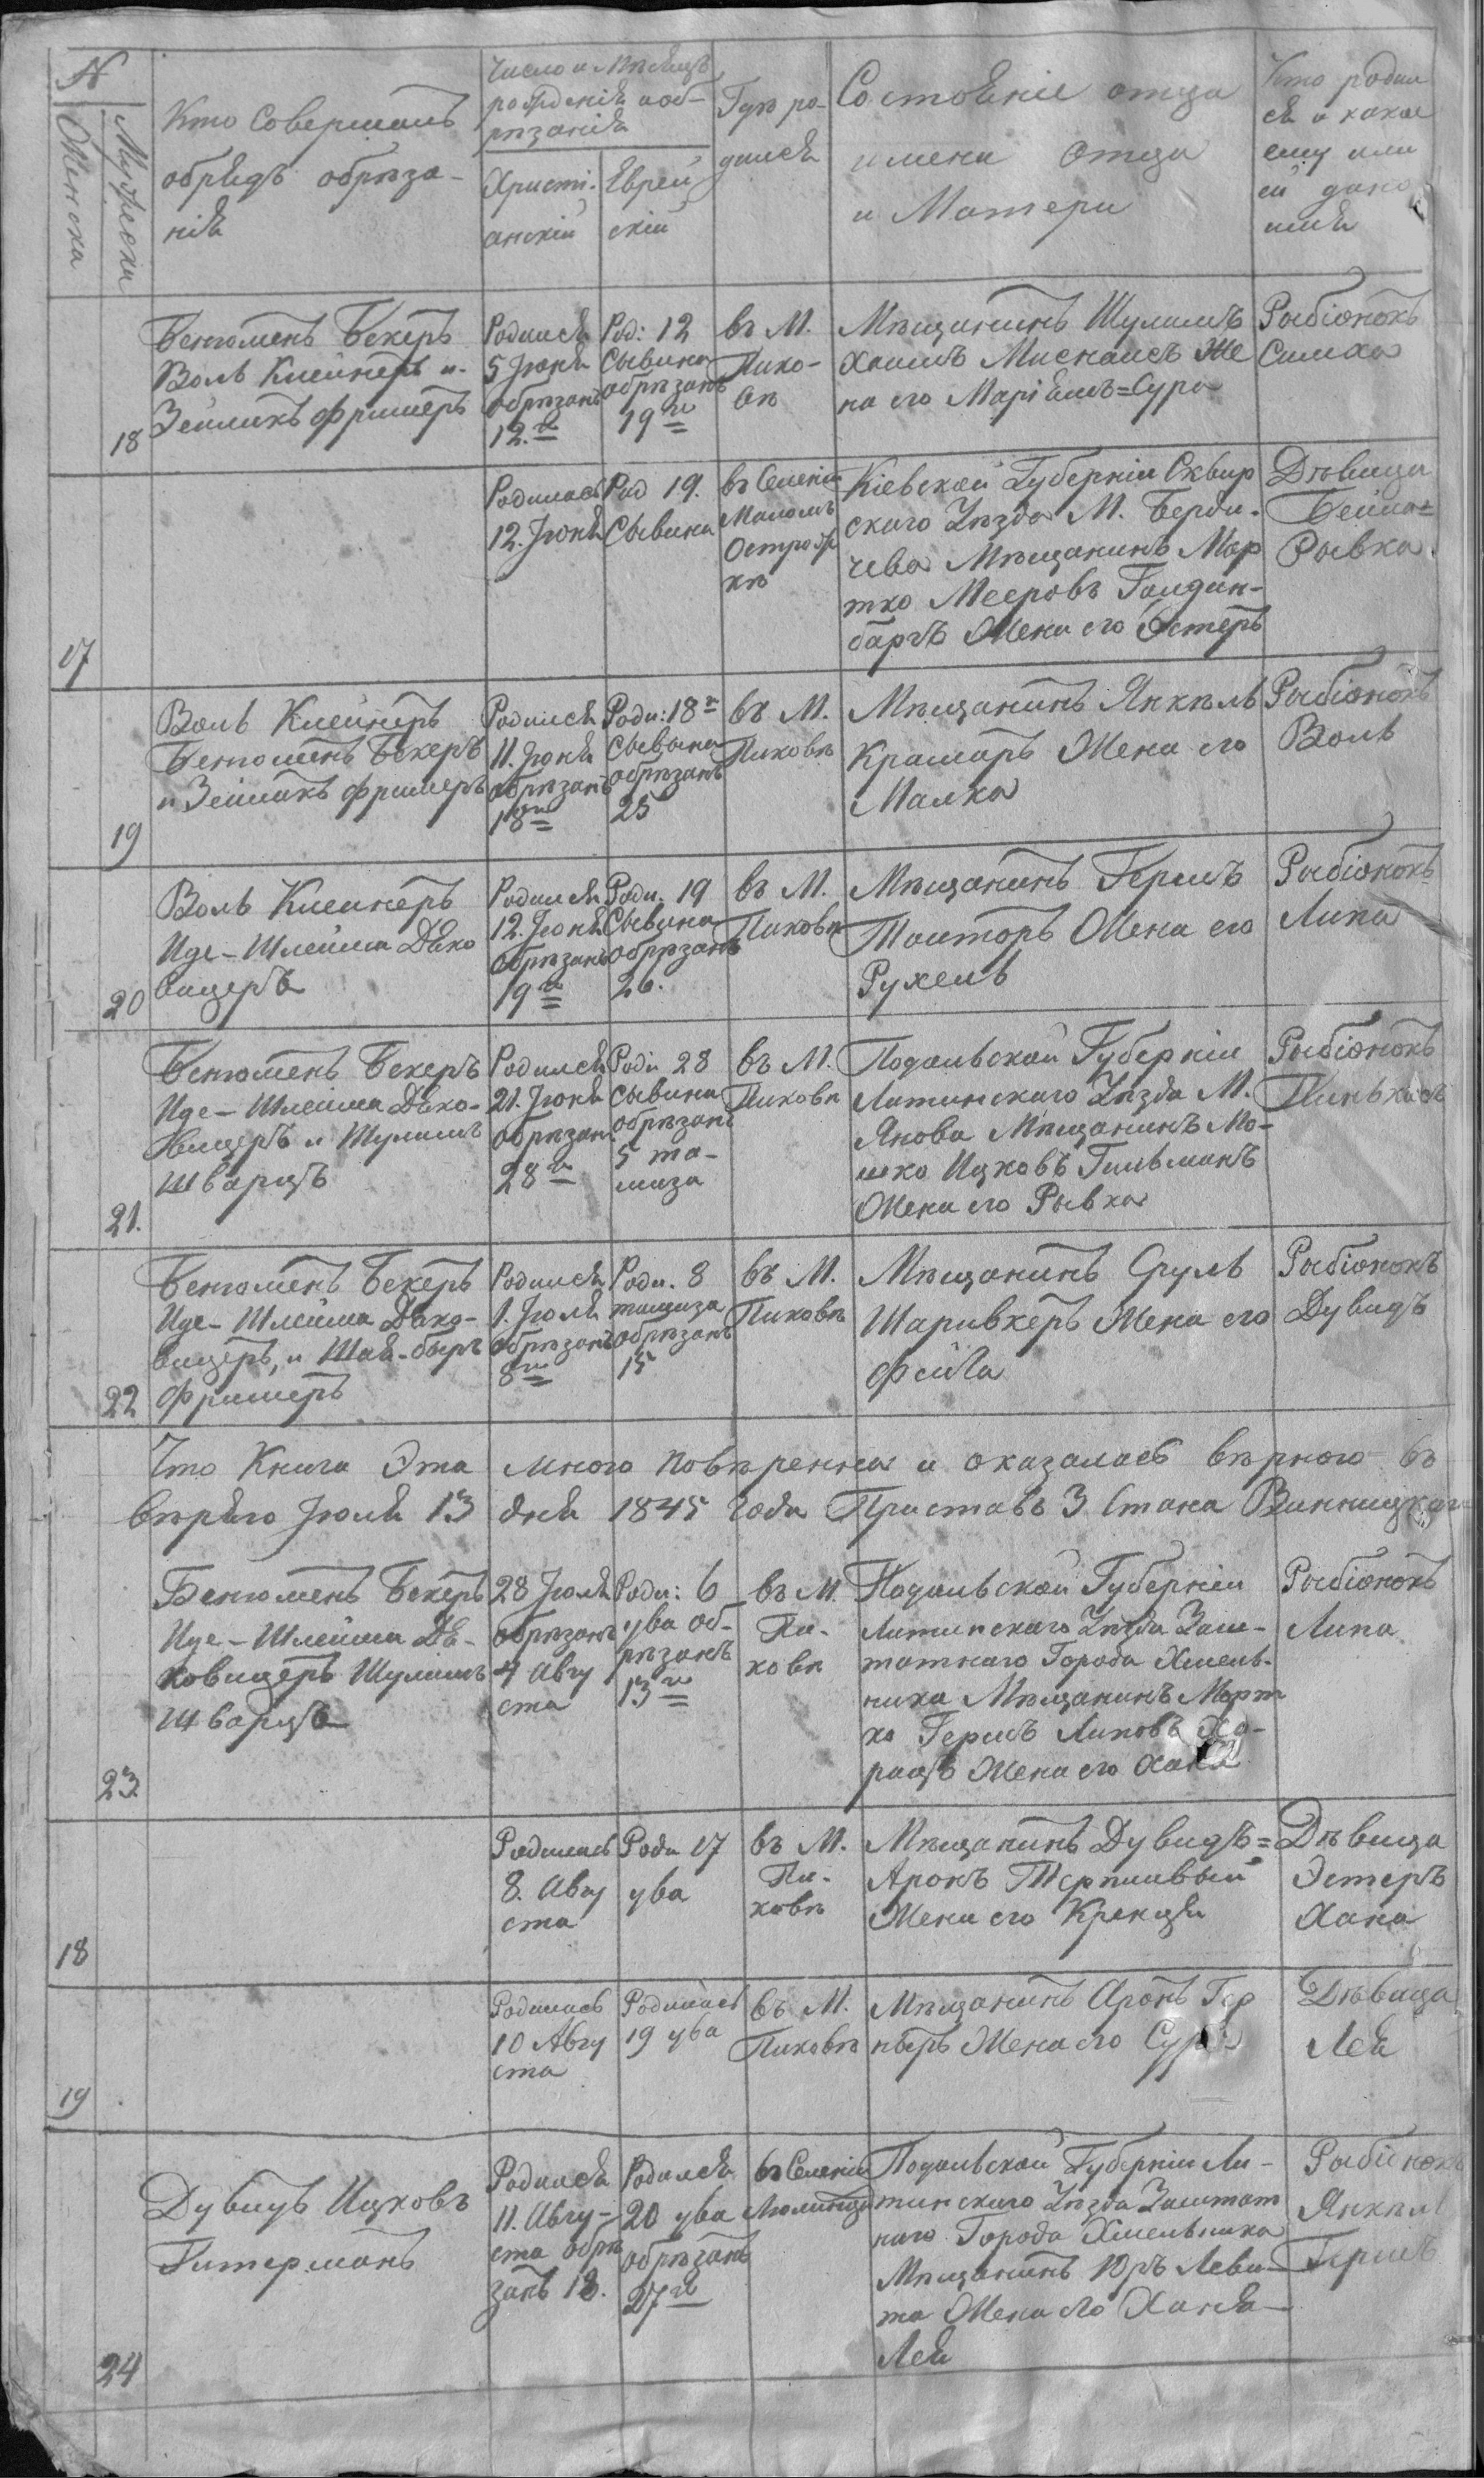 №
Женска
Мужеска
Кто Совершалъ
обрядъ обрѣза-
нія
Число и Мѣсяцъ
рожденія и об-
рѣзанія
Христі-
анскій
Еврей
скій
Гдѣ ро-
дился
Состояніе отца
имена Отца
и Матери
Кто родил
ся и какое
ему или
ей дано
имя
18
Бенюменъ Бекеръ
Воль Клейнеръ и
Зейликъ Фришеръ
Родился
5 Іюня
обрѣзанъ
12.го
Род: 12
Сывина
обрѣзанъ
19го
въ М.
Пико-
вѣ
Мѣщанинъ Шулимъ
Хаимъ Же
на его Маріямъ=Сура
Рыбіонокъ
Симха
17
Родилась
12. Іюня
Род 19.
Сывина
въ Селеніи
Маломъ
Острож
кѣ
Кіевской Губерніи Сквир
скаго Уѣзда М. Берди-
чева Мѣщанинъ Мор
тко Мееровъ Голдин-
баргъ Жена его Эстеръ
Дѣвица
Бейла=
Рывка.
19
Воль Клейнеръ
Бенюменъ Бекеръ
и Зейликъ Фришеръ
Родился
11. Іюня
обрѣзанъ
18го
Роди: 18го
Сывына
обрѣзанъ
25
въ М.
Пиковѣ
Мѣщанинъ Янкѣль
Крамаръ Жена его
Малка
Рыбіонокъ
Воль
20
Воль Клейнеръ
Иде-Шлейма Дяко
вицеръ
Родился
12. Іюня
обрѣзанъ
19го
Роди. 19
Сывина
обрѣзанъ
26.
въ М.
Пиковѣ
Мѣщанинъ Гершъ
Жена его
Рухель
Рыбіонокъ
Липа
21.
Бенюменъ Бекеръ
Иде-Шлейма Дяко-
вицеръ и Шулимъ
Шварцъ
Родился
21. Іюня
обрѣзан.
28го
Роди 28
Сывина
обрѣзанъ
5 та-
миза
въ М.
Пиковѣ
Подольской Губерніи
Литинскаго Уѣзда М.
Янова Мѣщанинъ Мо-
шко Ицковъ Гильманъ
Жена его Рывка
Рыбіонокъ
Пинькасъ
22
Бенюменъ Бекеръ
Иде-Шлейма Дяко-
вицеръ, и Шая-быръ
Фришеръ
Родился
1. Іюля
обрѣзанъ
8го
Роди. 8
тамиза
обрѣзанъ
15
въ М.
Пиковѣ
Мѣщанинъ Сруль
Шаривкеръ Жена его
Фейга
Рыбіонокъ
Дувидъ
Что Книга Эта мною повѣренна и оказалась вѣрного въ
вѣряю Іюля 13 дня 1845 года Приставъ 3 Стана Винницкаго
23
Бенюменъ Бекеръ
Иде-Шлейма Дя-
ковицеръ Шулимъ
Шварцъ
28 Іюля
обрѣзанъ
4 Авгу
ста
Роди: 6
ува об-
рѣзанъ
13го
въ М.
Пи-
ковѣ
Подольской Губерніи
Литинскаго Уѣзда Заш-
татнаго Города Хмель-
ника Мѣщанинъ Морт
ко Гершъ Липовъ
Жена его Хана
Рыбіонокъ
Липа
18
Родилась
8. Авгу
ста
Роди 17
ува
въ М.
Пи-
ковѣ
Мѣщанинъ Дувидъ=
Аронъ Терпливый
Жена его Крейндя
Дѣвица
Эстеръ
Хана
19
Родилась
10 Авгу
ста
Родилась
19 ува
въ М.
Пиковѣ
Мѣщанинъ Аронъ Гер
неръ Жена его Сура
Дѣвица
Лея
24
Дувидъ Ицковъ
Гитерманъ
Родился
11. Авгу-
ста обрѣ
занъ 18.
Родился
20 ува
обрѣзанъ
27го
въ Селеніи
Люлинцы
Подольской Губерніи Ли-
тинскаго Уѣзда Заштат
наго Города Хмельника
Мѣщанинъ Юръ Леви-
та Жена его Хана
Лея
Рыбіонокъ
Янкѣль
Гершъ